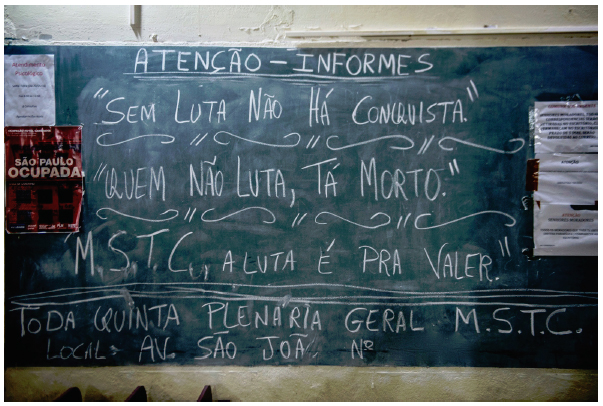 ATENÇÃO - INFORMES
"SEM LUTA NÃO HÁ CONQUISTA."
"QUEM NÃO LUTA, TÁ MORTO."
"M.S.T.C., A LUTA É PRA VALER."
TODA QUINTA PLENÁRIA GERAL M.S.T.C.
LOCAL: AV. SÃO JOÃO Nº
Atendimento
Psicológico
SÃO PAULO
OCUPADA